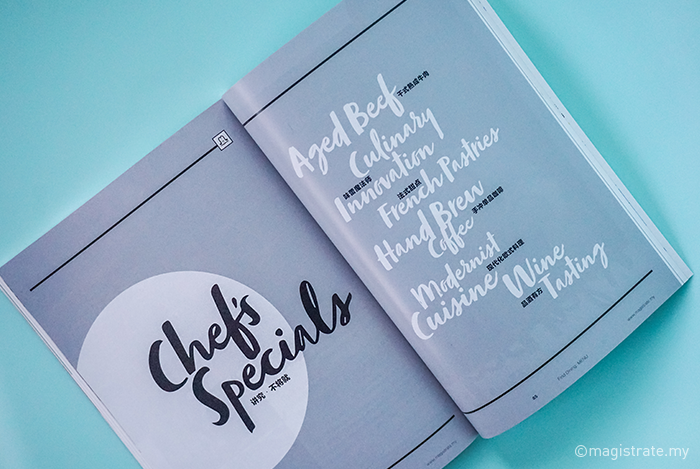 Chef's
Specials
讲究·不将就
Aged Beef
干式熟成牛肉
Culinary
Innovation
味蕾魔法师
French Pastries
法式甜点
Hand Brew
Coffee
手冲单品咖啡
Modernist
Cuisine
现代化欧式料理
Wine
Tasting
品酒有方
©magistrate.my